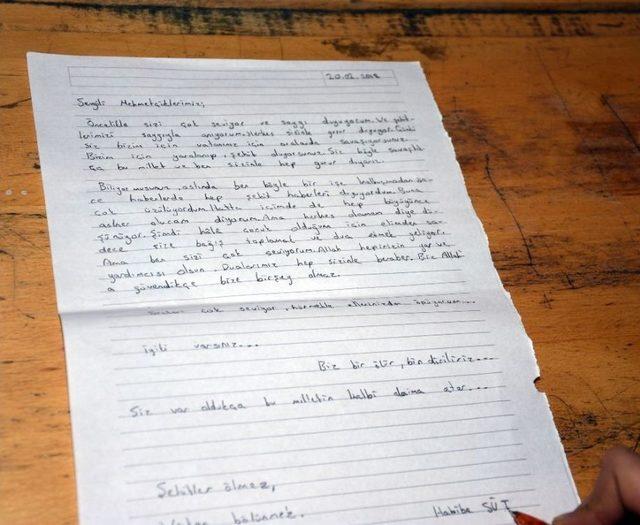 20.02.2018
Sevgili Mehmetçiklerimiz;
Öncelikle sizi çok seviyor ve saygı duyuyorum. Ve şehit-
lerimizi saygıyla anıyorum. Herkes sizinle gurur duyuyor. Çünkü
siz bizim için vatanımız için oralarda savaşıyorsunuz.
Bizim için yaralanıp, şehit oluyorsunuz. Siz böyle savaştık-
ça bu millet ve ben sizinle hep gurur duyarız.
Biliyormusunuz, aslında ben böyle bir işe kalkışmadan ön-
ce haberlerde hep şehit haberleri duyuyordum. Buna
çok üzülüyordum. Hatta içimde de hep büyüyünce
asker olucam diyorum. Ama herkes olamam diye dü-
şünüyor. Şimdi hâla çocuk olduğum için elimden sa-
dece size bağış toplamak ve dua etmek geliyor.
Ama ben sizi çok seviyorum. Allah hepinizin yar ve
yardımcısı olsun. Dualarımız hep sizinle beraber. Biz Allah'
a güvendikçe bize birşey olmaz.
çok seviyor, hürmetle ellerinizden öpüyorum...
İyiki varsınız...
Biz bir ölür, bin diriliriz...
Siz var oldukça bu milletin kalbi daima atar...
Şehitler ölmez,
bölünmez.
Habibe SÜT